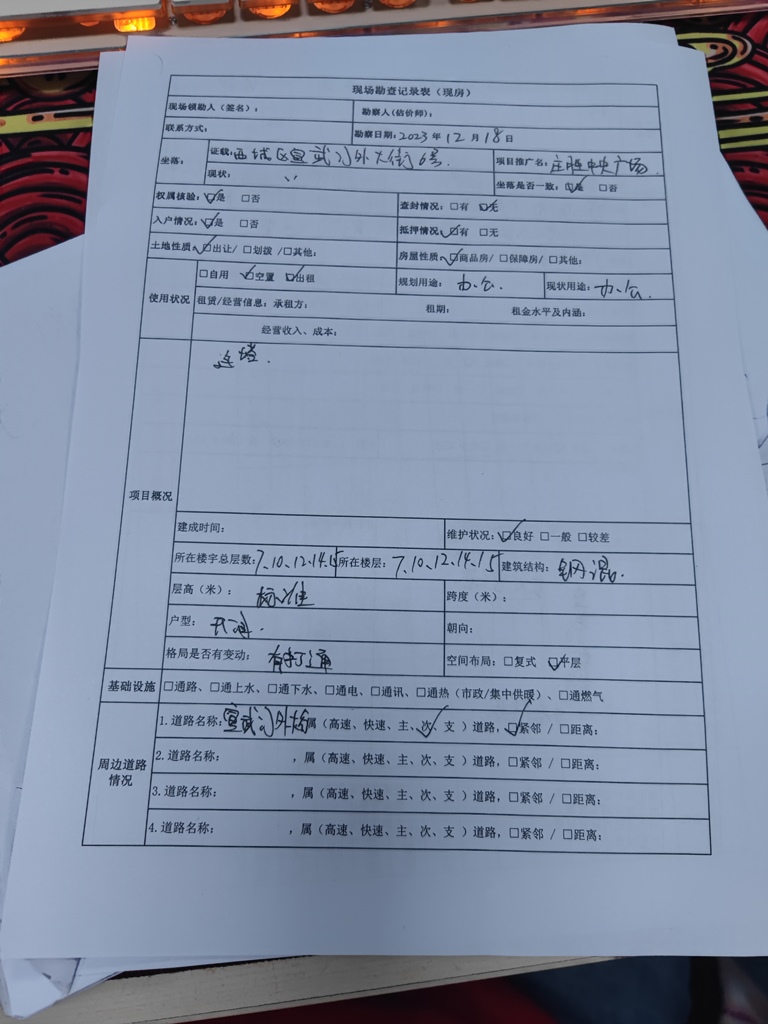 现场勘查记录表（现房）
现场领勘人（签名）： 勘察人(估价师)：
联系方式： 勘察日期：2023年12月18日
坐落： 证载：西城区宣武门外大街6号. 项目推广名：庄胜中央广场
现状： 坐落是否一致：☑是 □否
权属核验：☑是 □否 查封情况：□有 ☑无
入户情况：☑是 □否 抵押情况：☑有 □无
土地性质：☑出让/ □划拨 /□其他： 房屋性质：☑商品房/ □保障房/ □其他：
使用状况 □自用 ☑空置 ☑出租 规划用途：办公. 现状用途：办公.
租赁/经营信息：承租方： 租期： 租金水平及内涵：
经营收入、成本：
项目概况
建成时间： 维护状况：☑良好 □一般 □较差
所在楼宇总层数：7、10、12、14、15 所在楼层：7、10、12、14、15 建筑结构：钢混.
层高（米）：标准 跨度（米）：
户型： 朝向：
格局是否有变动：有打通 空间布局：□复式 ☑平层
基础设施 □通路、□通上水、□通下水、□通电、□通讯、□通热（市政/集中供暖）、□通燃气
周边道路情况 1.道路名称：宣武门外大街属（高速、快速、主、次、支 ）道路，☑紧邻 / □距离：
2.道路名称： ，属（高速、快速、主、次、支 ）道路，□紧邻 / □距离：
3.道路名称： ，属（高速、快速、主、次、支 ）道路，□紧邻 / □距离：
4.道路名称： ，属（高速、快速、主、次、支 ）道路，□紧邻 / □距离：